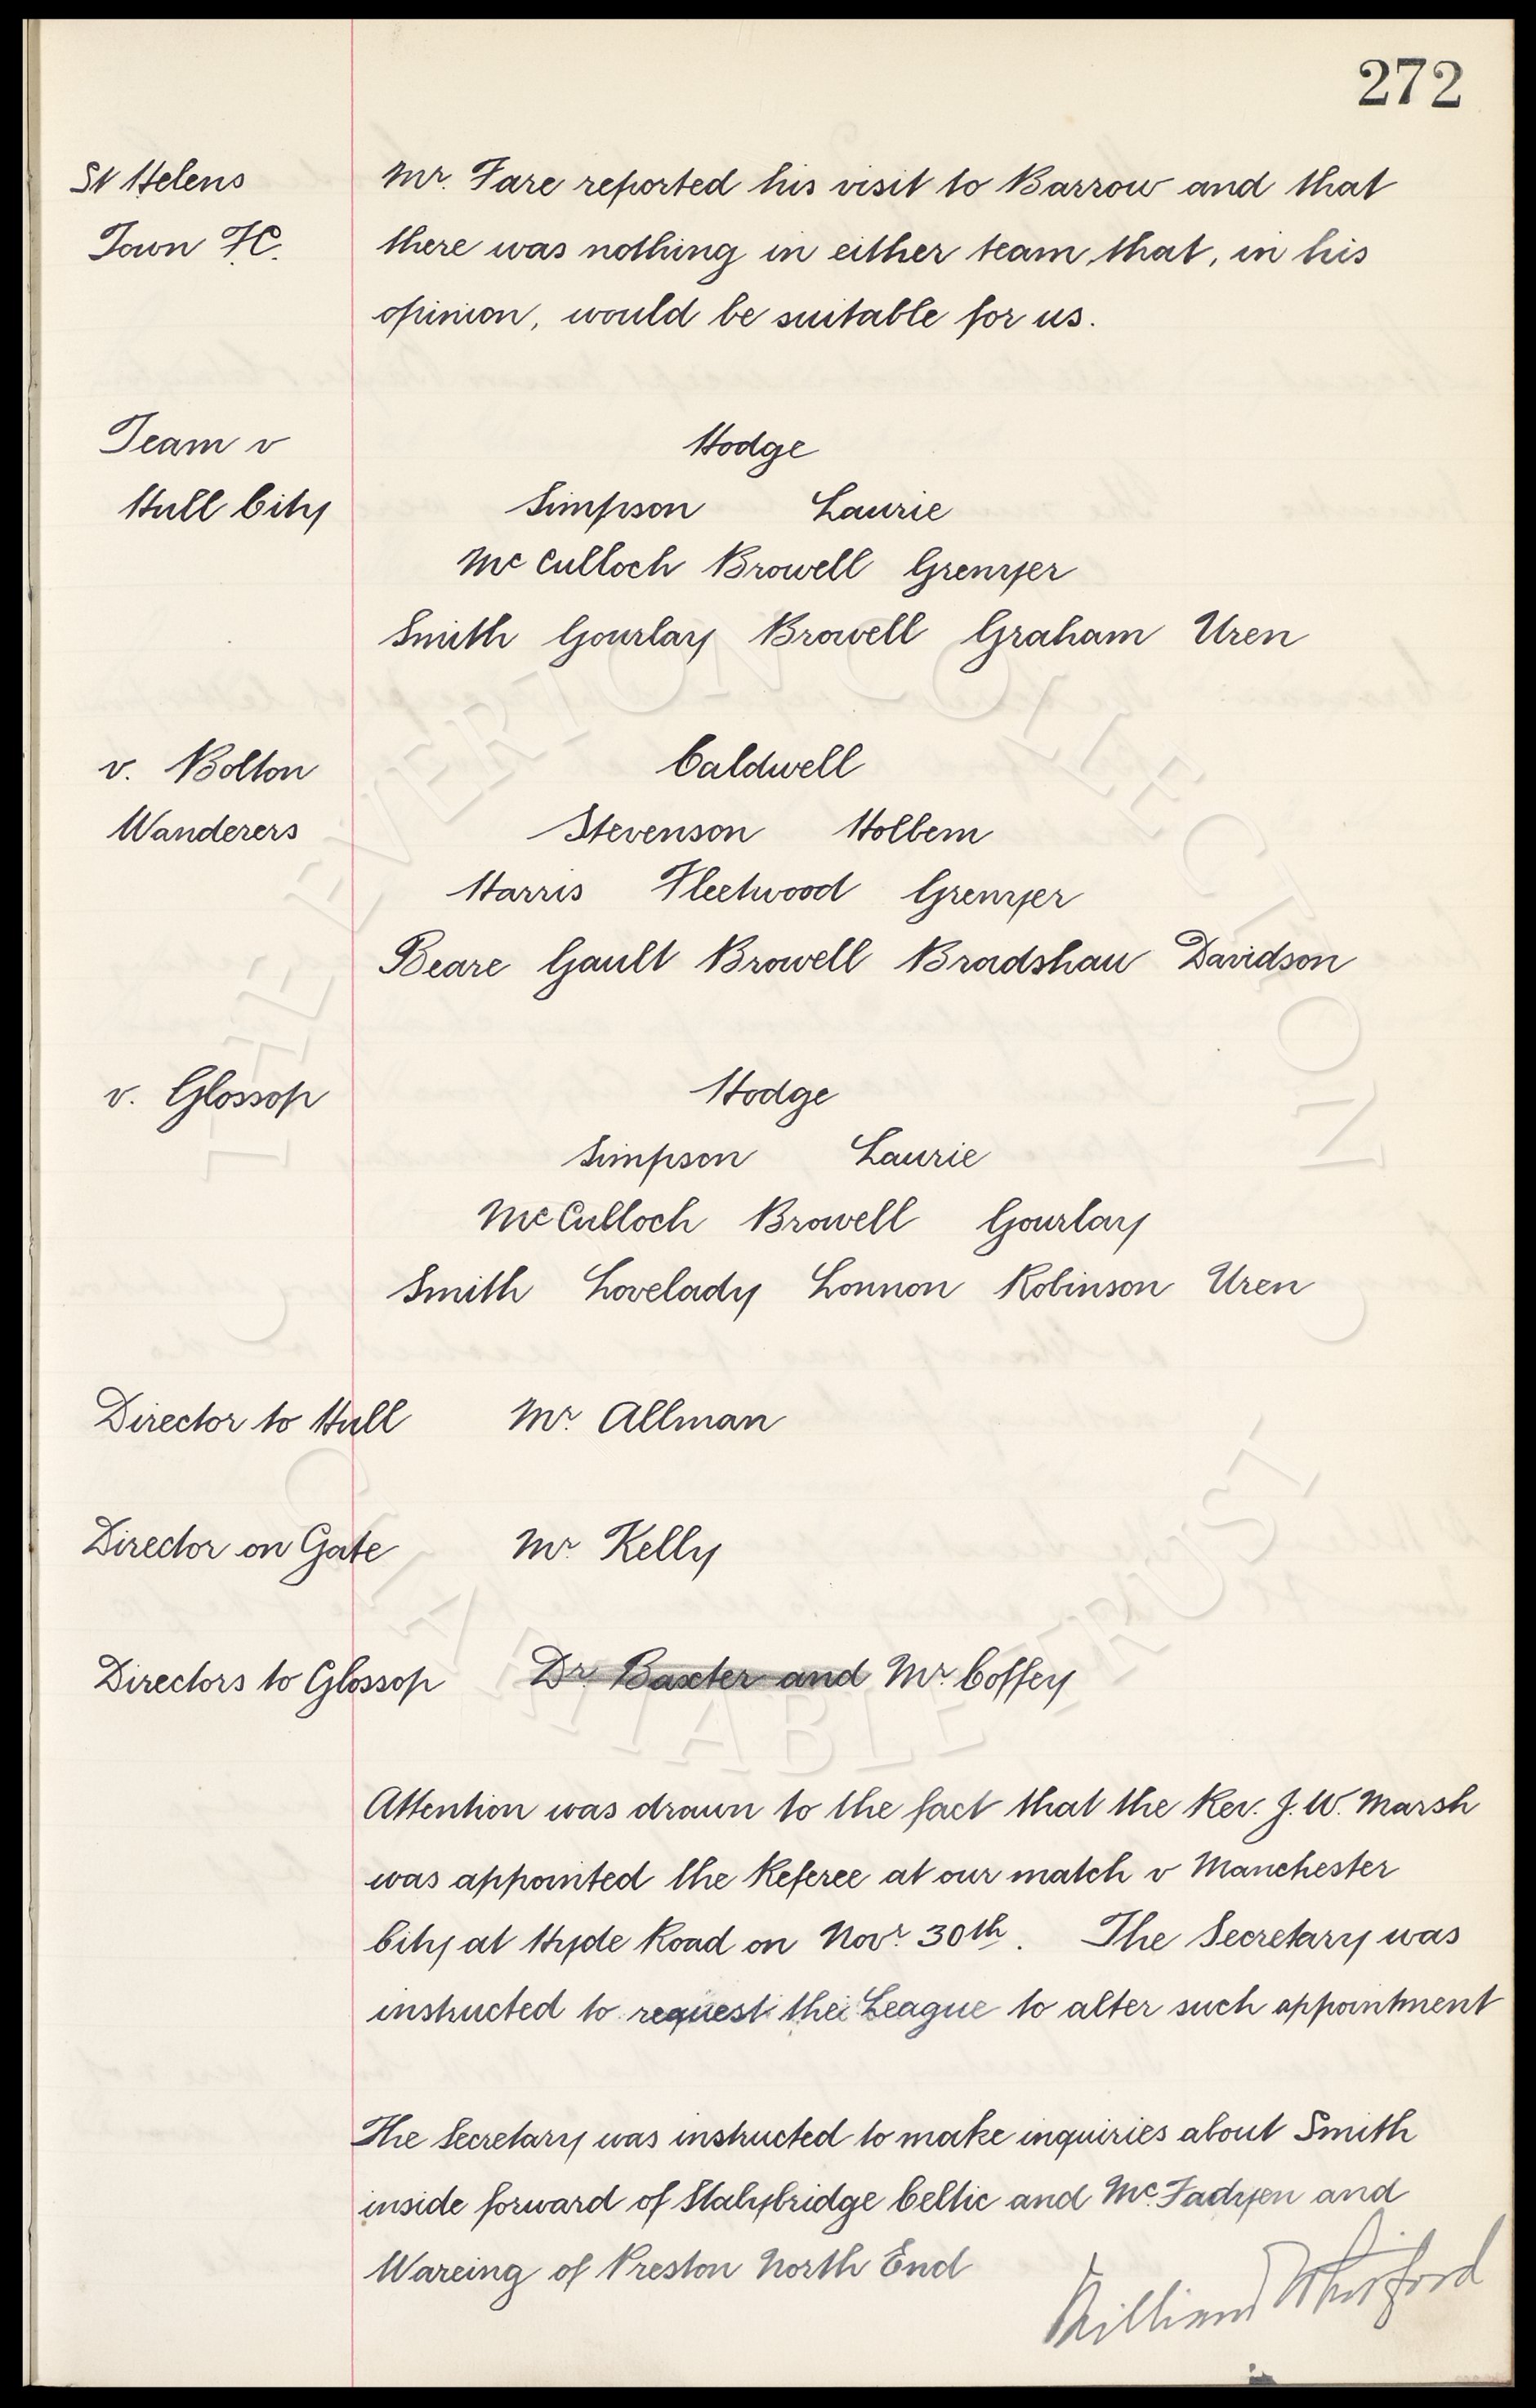 272
St Helens
Town F.C.
Mr. Fare reported his visit to Barrow and that
there was nothing in either team, that, in his
opinion, would be suitable for us.
Team v
Hull City
Hodge
Simpson Laurie
McCulloch Browell Grenyer
Smith Gourlay Browell Graham Uren
v. Bolton
Wanderers
Caldwell
Stevenson Holbem
Harris Fleetwood Grenyer
Beare Gault Browell Bradshaw Davidson
v. Glossop
Hodge
Simpson Laurie
McCulloch Browell Gourlay
Smith Lovelady Lonnon Robinson Uren
Director to Hull Mr. Allman
Director on Gate Mr. Kelly
Directors to Glossop Dr. Baxter and Mr. Coffey
Attention was drawn to the fact that the Rev. J. W. Marsh
was appointed the Referee at our match v Manchester
City at Hyde Road on Novr 30th. The Secretary was
instructed to request the League to alter such appointment
The Secretary was instructed to make inquiries about Smith
inside forward of Stalybridge Celtic and McFadyen and
Wareing of Preston North End
William Whitford
THE EVERTON COLLECTION
CHARITABLE TRUST